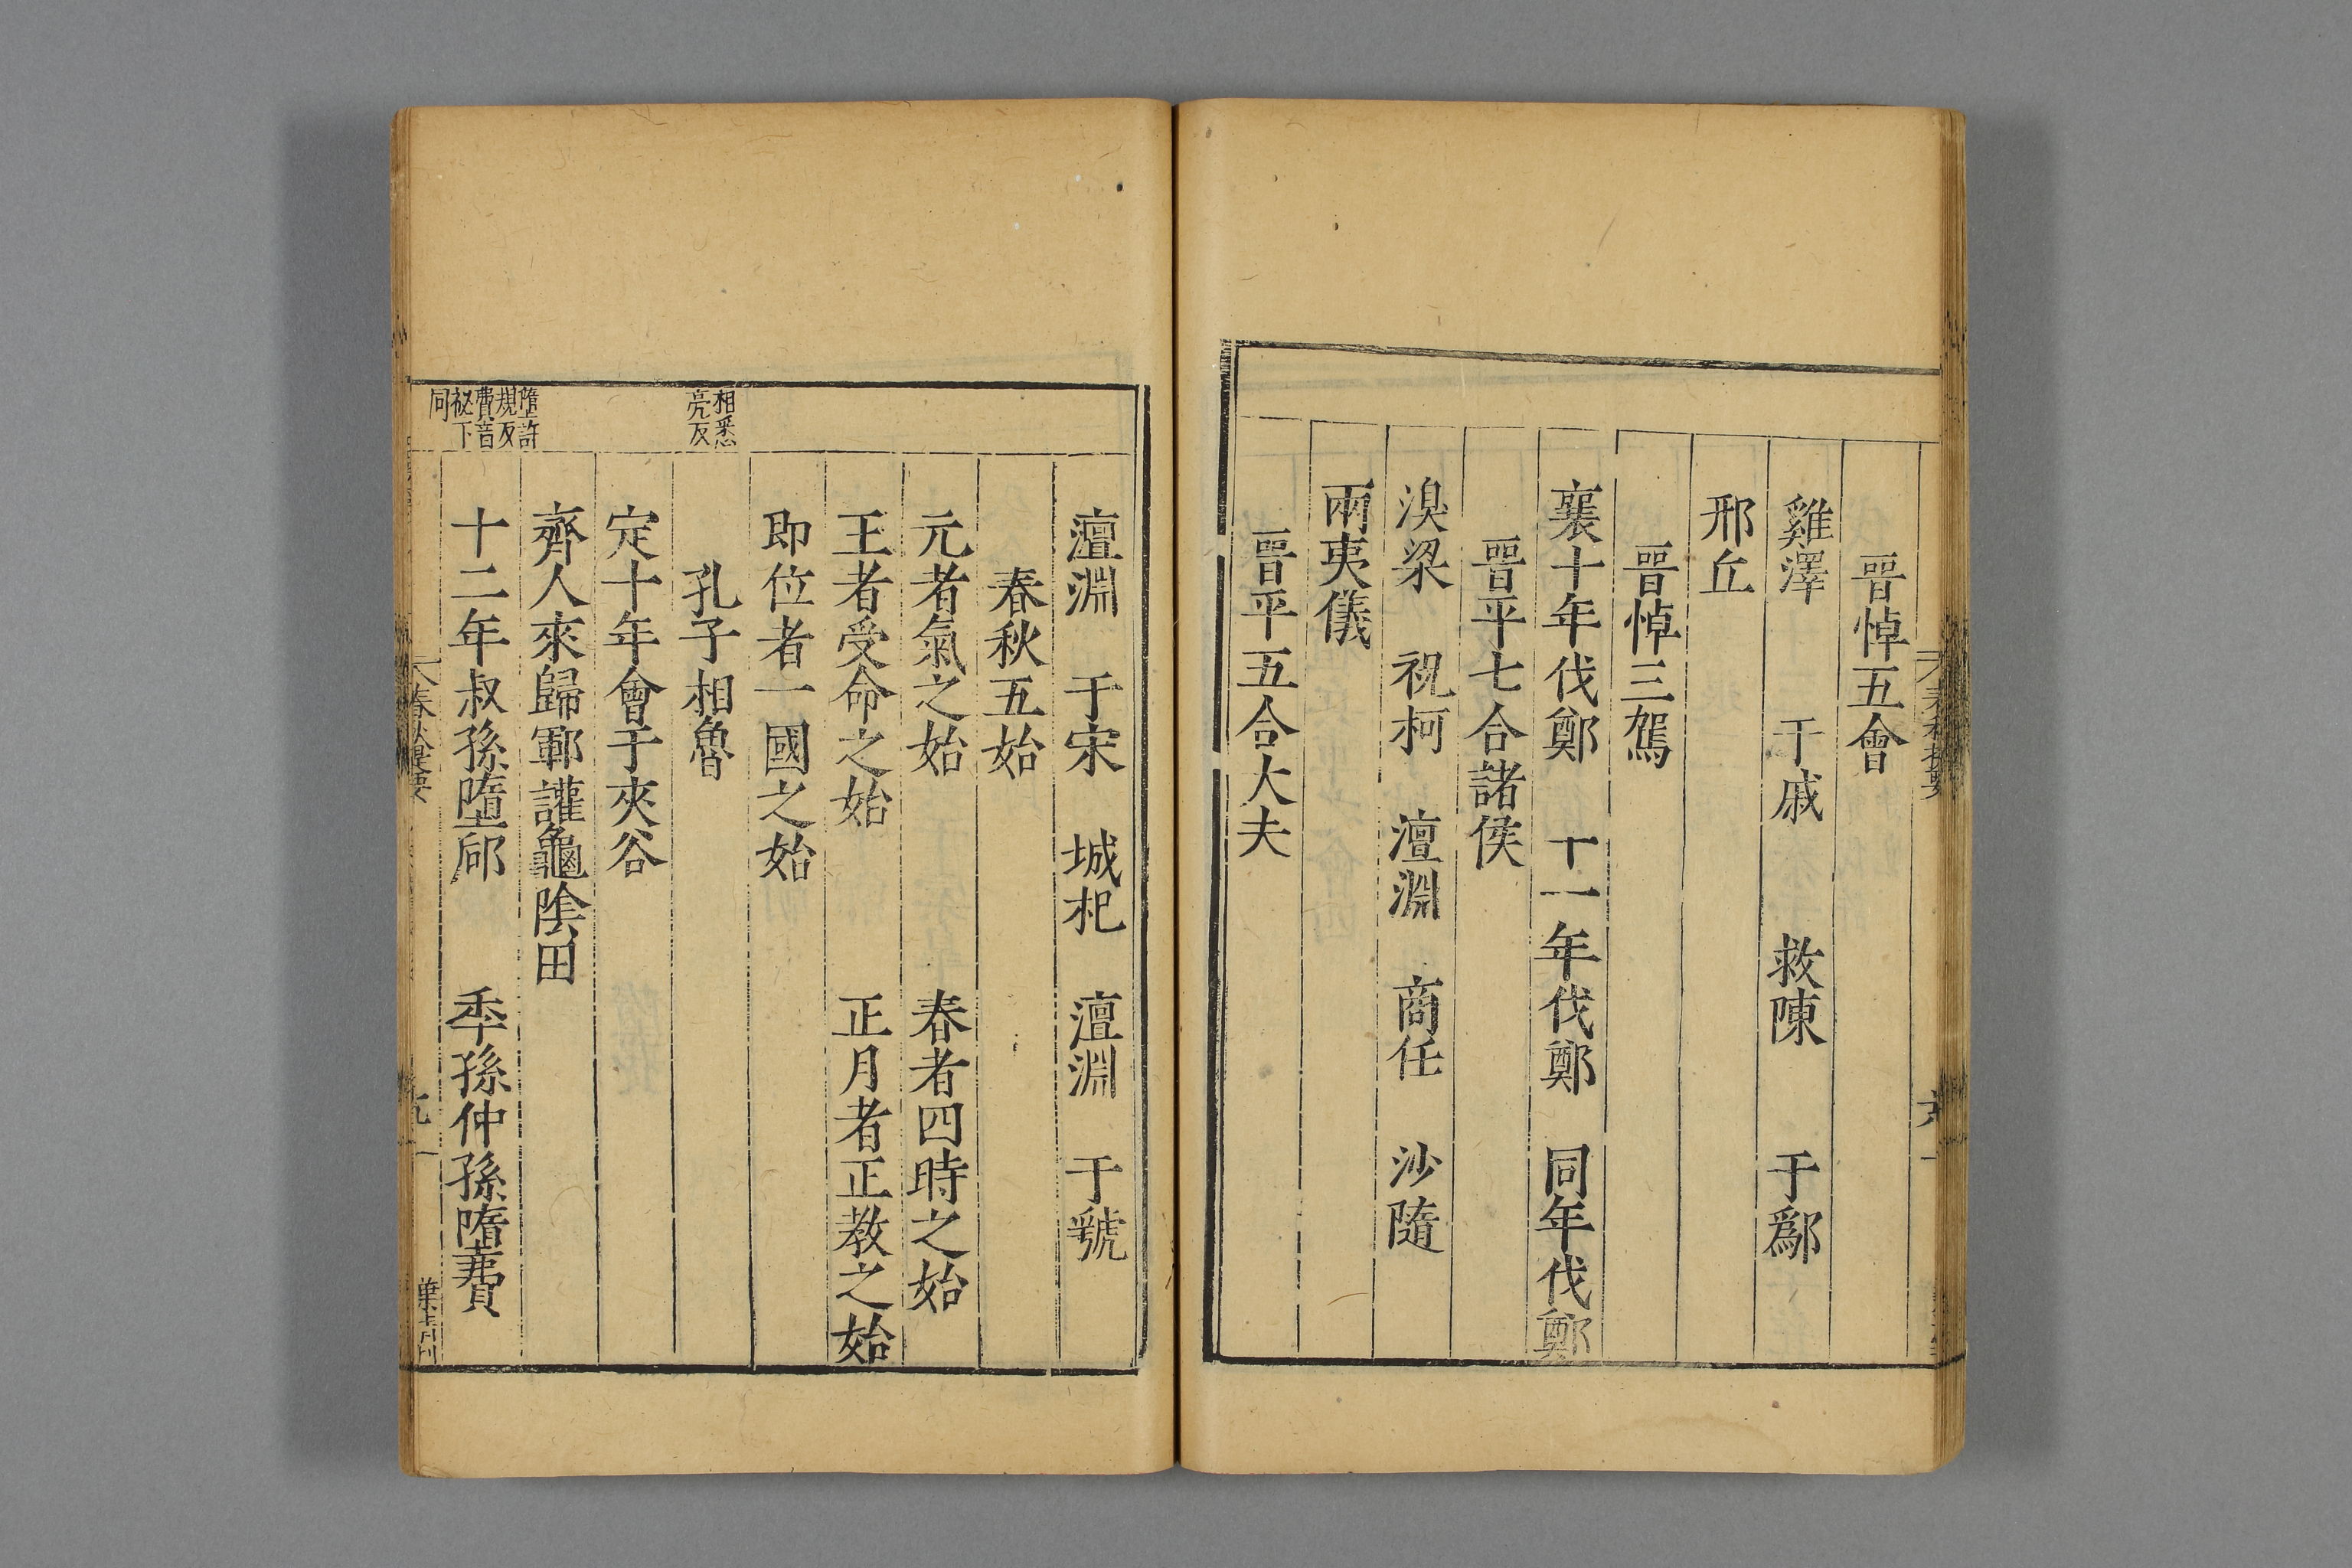 晉悼五會
雞澤 于戚 救陳 于鄬
邢丘
晉悼三駕
襄十年伐鄭 十一年伐鄭 同年伐鄭
晉平七合諸侯
溴梁 祝柯 澶淵 商任 沙隨
兩夷儀
晉平五合大夫
澶淵 于宋 城杞 澶淵 于虢
春秋五始
元者氣之始 春者四時之始
王者受命之始 正月者正教之始
即位者一國之始
相悉
亮反
孔子相魯
定十年會于夾谷
齊人來歸鄆讙龜陰田
墮許
規反
費音
祕下
同
十二年叔孫墮郈 季孫仲孫墮費
春秋提要
九